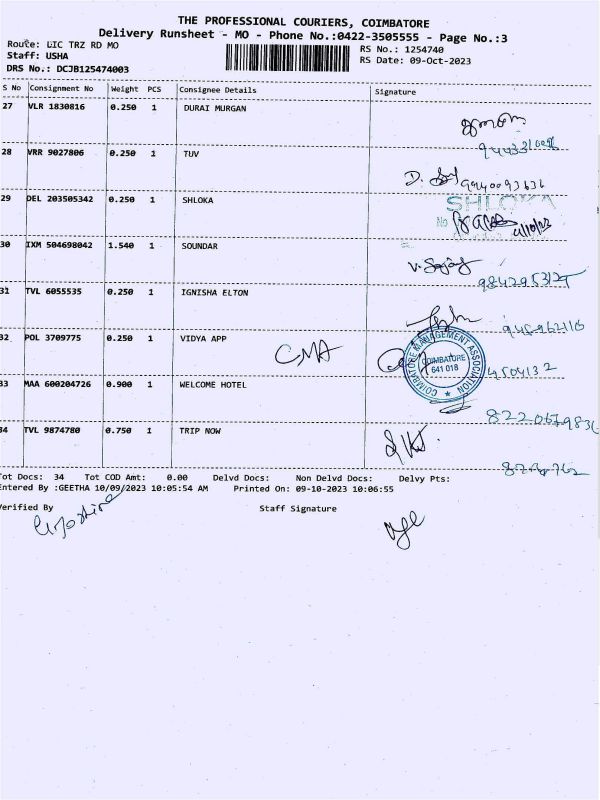 THE PROFESSIONAL COURIERS, COIMBATORE
Delivery Runsheet - MO - Phone No.:0422-3505555 - Page No.:3
Route: LIC TRZ RD MO
RS No.: 1254740
Staff: USHA
RS Date: 09-Oct-2023
DRS No.: DCJB125474003
S No Consignment No Weight PCS Consignee Details Signature
27 VLR 1830816 0.250 1 DURAI MURGAN
28 VRR 9027806 0.250 1 TUV
D.
9940093636
29 DEL 203505342 0.250 1 SHLOKA
SHLOKA
No
30 IXM 504698042 1.540 1 SOUNDAR
31 TVL 6055535 0.250 1 IGNISHA ELTON
32 POL 3709775 0.250 1 VIDYA APP
CMA
COIMBATORE MANAGEMENT ASSOCIATION
COIMBATORE
641 018
33 MAA 600204726 0.900 1 WELCOME HOTEL
34 TVL 9874780 0.750 1 TRIP NOW
Tot Docs: 34 Tot COD Amt: 0.00 Delvd Docs: Non Delvd Docs: Delvy Pts:
Entered By :GEETHA 10/09/2023 10:05:54 AM Printed On: 09-10-2023 10:06:55
Verified By Staff Signature